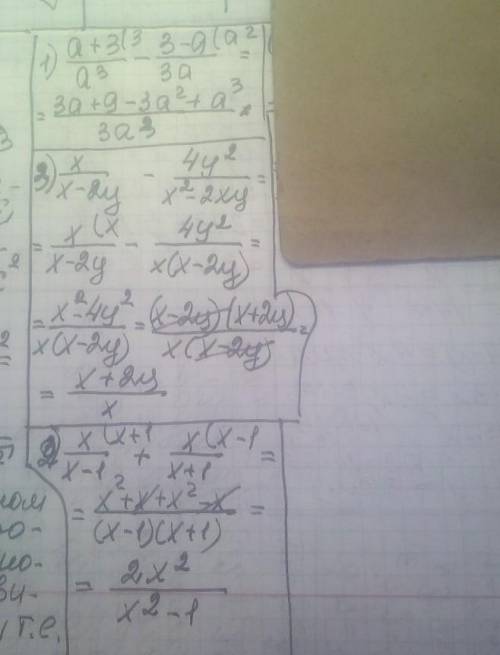 1) (a+3(3)/a³ - (3-a(a²)/3a =
= (3a+9-3a²+a³)/3a³ =
3) x/(x-2y) - 4y²/(x²-2xy) =
= x(x/(x-2y) - 4y²/(x(x-2y)) =
= (x²-4y²)/(x(x-2y)) = (x-2y)(x+2y)/(x(x-2y)) =
= (x+2y)/x
2) x(x+1/(x-1) + x(x-1/(x+1) =
= (x²+x+x²-x)/((x-1)(x+1)) =
= 2x²/(x²-1)
ном
ю-
но-
зи-
т.е.